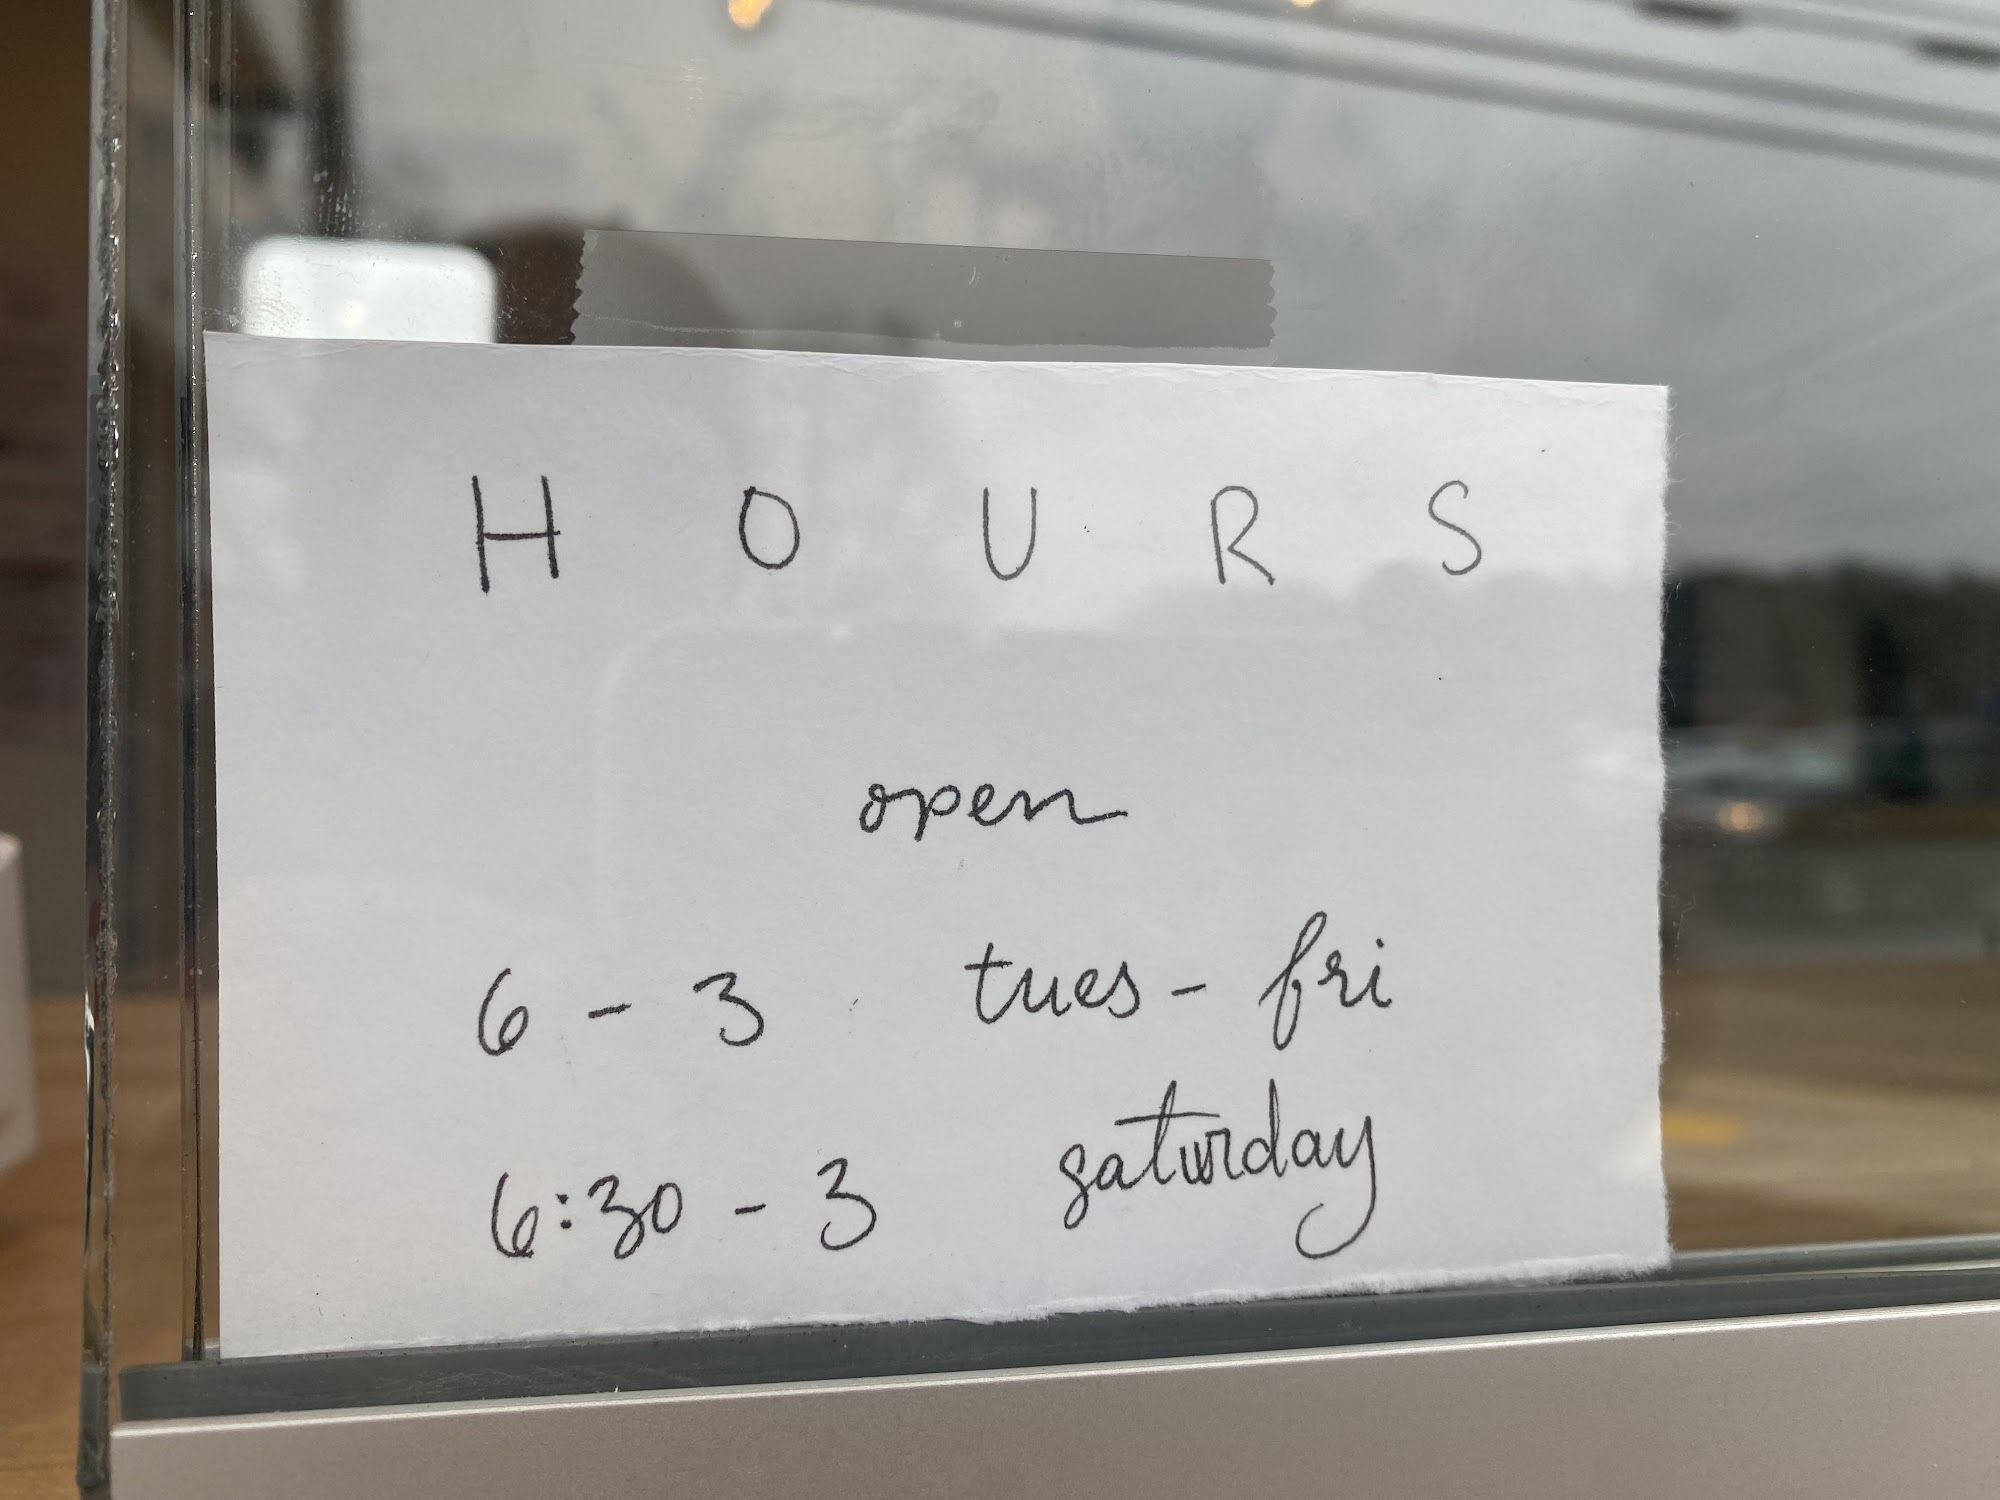 HOURS
open
6 - 3 tues - fri
6:30 - 3 saturday